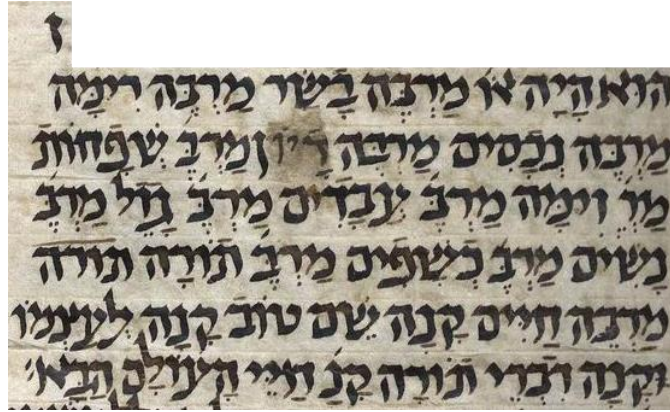 ז
הוא היה או מרבה בשר מרבה רימה
מרבה נכסים מרבה דיון מרב שפחות
מר זימה מרב עבדים מרב גזל מרב
נשים מרב כשפים מרב תורה תורה
מרבה חיים קנה שם טוב קנה לעצמו
וקנה דברי תורה קנ חיי העולם הבא׳